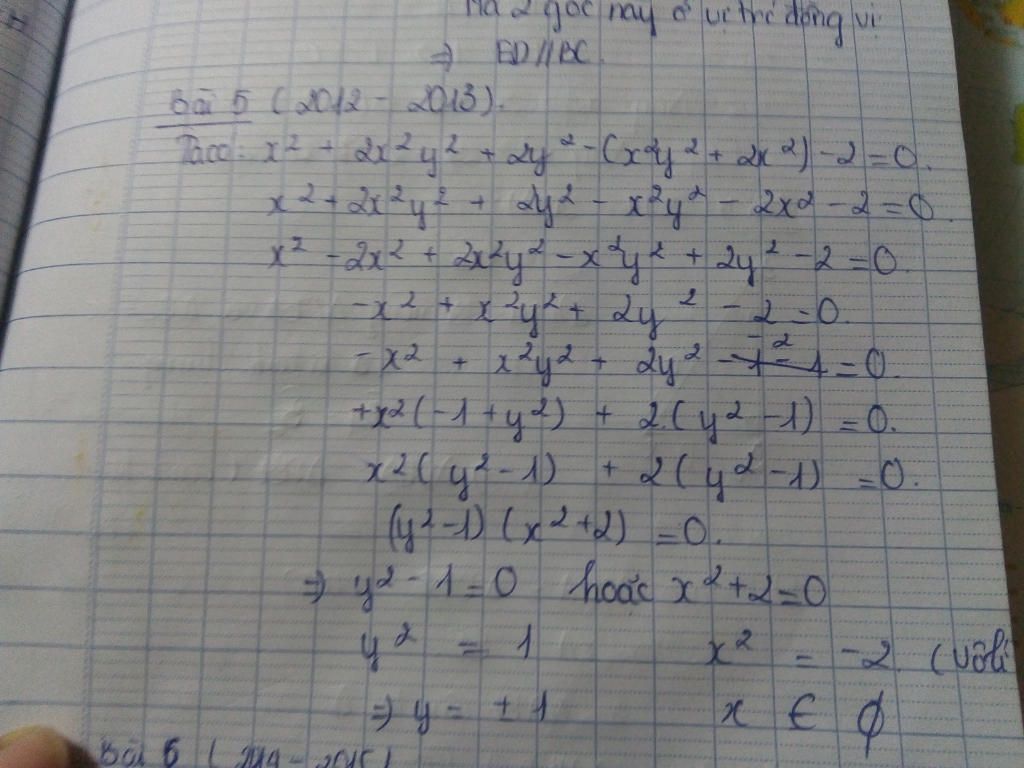 Mà 2 góc này ở vị trí đồng vị
⇒ ED // BC.
Bài 5 (2012 - 2013).
Ta có: x² + 2x²y² + 2y² - (x²y² + 2x²) - 2 = 0.
x² + 2x²y² + 2y² - x²y² - 2x² - 2 = 0.
x² - 2x² + 2x²y² - x²y² + 2y² - 2 = 0.
-x² + x²y² + 2y² - 2 = 0.
-x² + x²y² + 2y² - 2 = 0.
+x²(-1 + y²) + 2.(y² - 1) = 0.
x²(y² - 1) + 2(y² - 1) = 0.
(y² - 1)(x² + 2) = 0.
⇒ y² - 1 = 0 hoặc x² + 2 = 0
y² = 1 x² = -2 (vô lí
⇒ y = ±1 x ∈ ∅
Bài 6 (